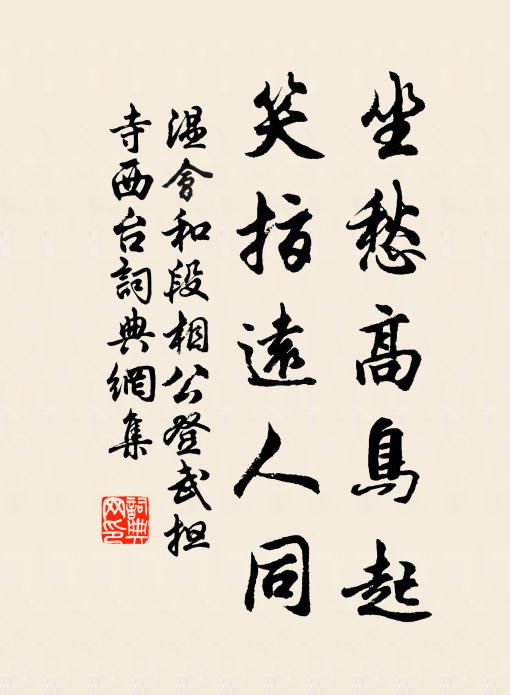 坐愁高鳥起
笑指遠人同
溫會和段相公登武担
寺西台詞典網集
詞典網印